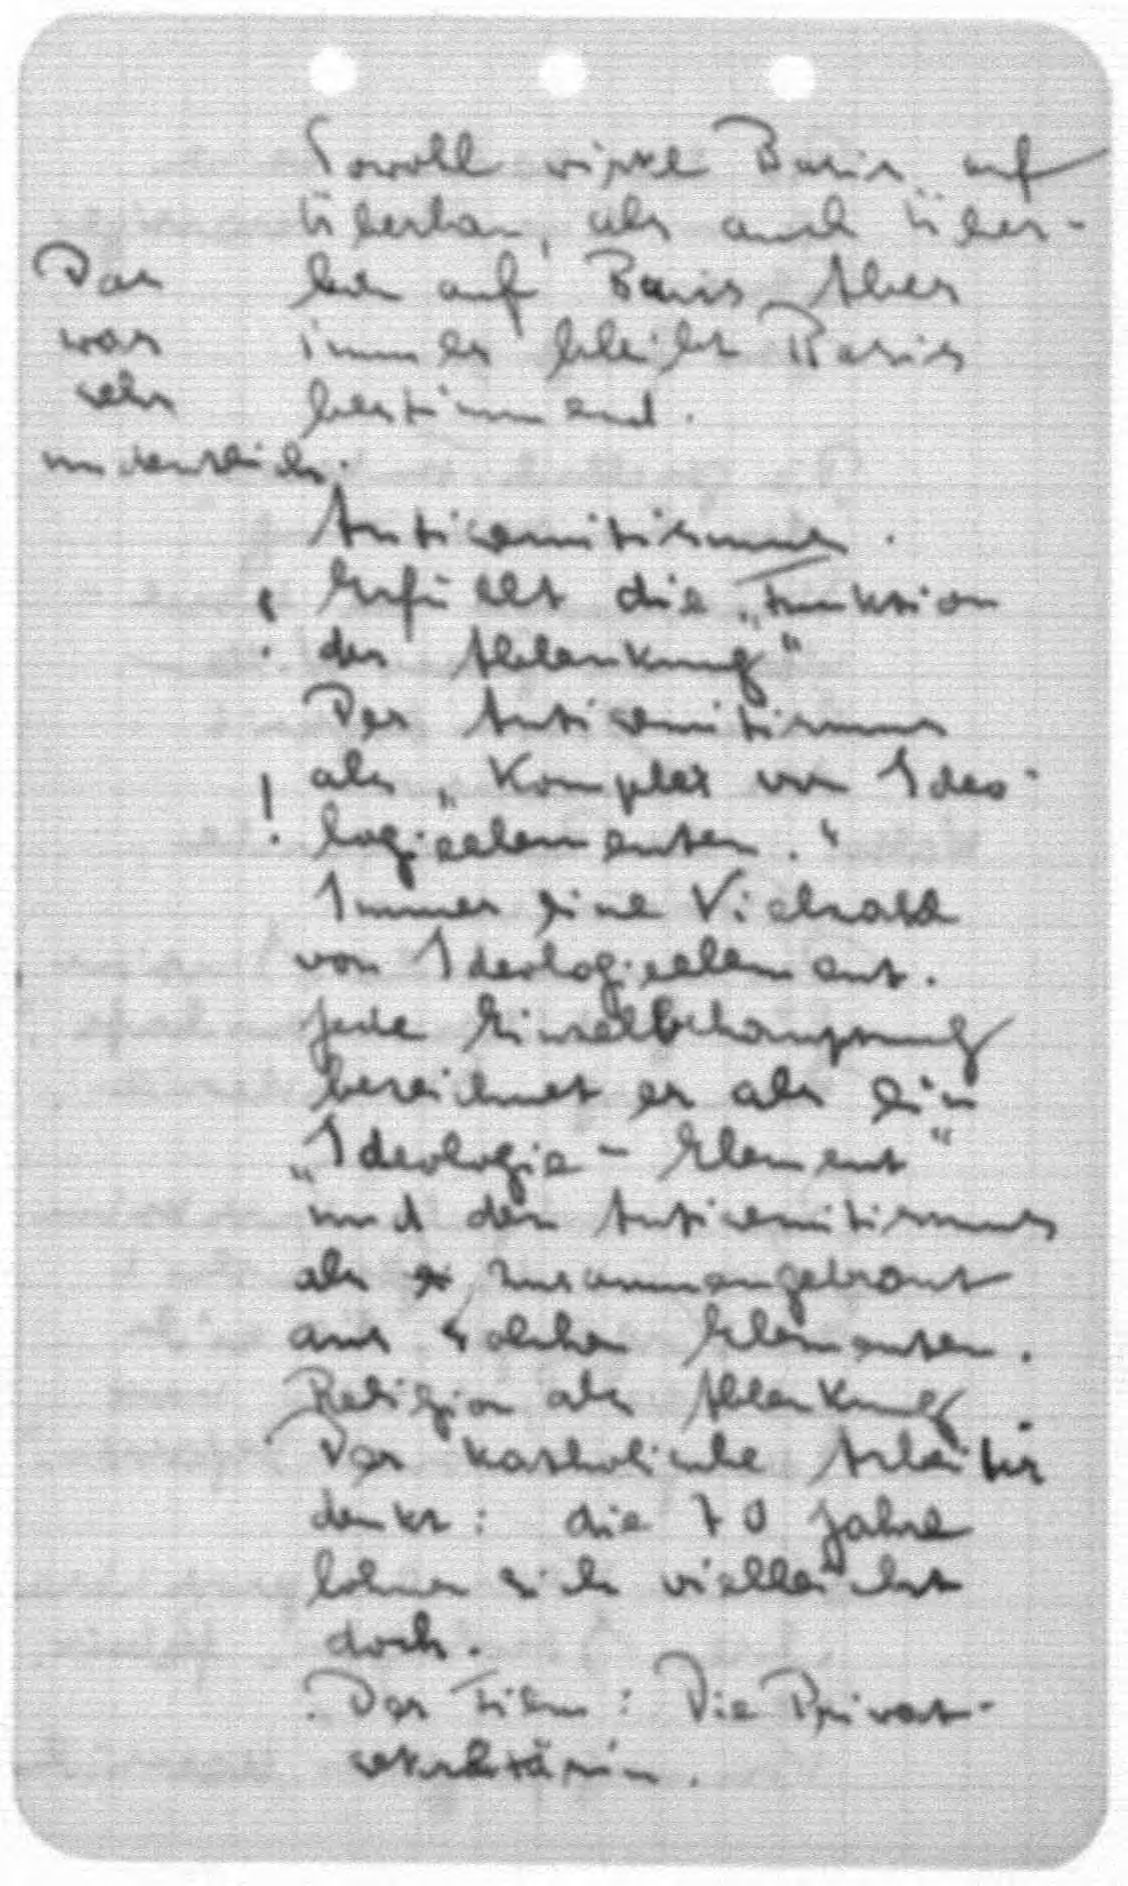 Sowohl wirkt Basis auf
Überbau, als auch Über-
bau auf Basis. Aber
immer bleibt Basis
bestimmend.
Das
war
sehr
undeutlich.
Antisemitismus.
! Erfüllt die „Funktion
der Ablenkung“
Der Antisemitismus
! als „Komplex von Ideo-
logieelementen.“
Immer eine Vielzahl
von Ideologieelement.
Jede Einzelbehauptung
bezeichnet er als ein
„Ideologie-Element“
und den Antisemitismus
als zusammengebraut
aus solchen Elementen.
Religion als Ablenkung
Der katholische Arbeiter
denkt: die 70 Jahre
lohnen sich vielleicht
doch.
Der Film: Die Privat-
sekretärin.